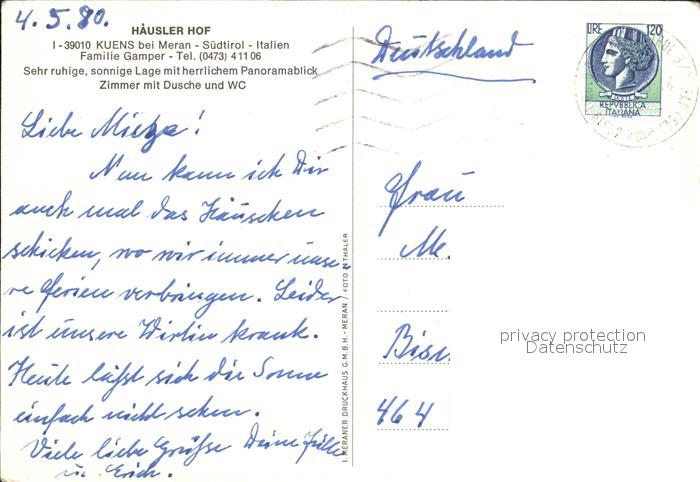 4. 5. 80.
HÄUSLER HOF
I - 39010 KUENS bei Meran - Südtirol - Italien
Familie Gamper - Tel. (0473) 4 11 06
Sehr ruhige, sonnige Lage mit herrlichem Panoramablick
Zimmer mit Dusche und WC
Liebe
Nun kann ich Dir
auch mal das Häuschen
schicken, wo wir immer unse-
re Ferien verbringen. Leider
ist unsere Wirtin krank.
Heute läßt sich die Sonne
einfach nicht sehen.
Viele liebe Grüße Deine
u. Erich.
I. MERANER DRUCKHAUS G.M.B.H. - MERAN / FOTO
Deutschland
LIRE 120
REPVBBLICA
ITALIANA
Frau
M.
464
privacy protection
Datenschutz